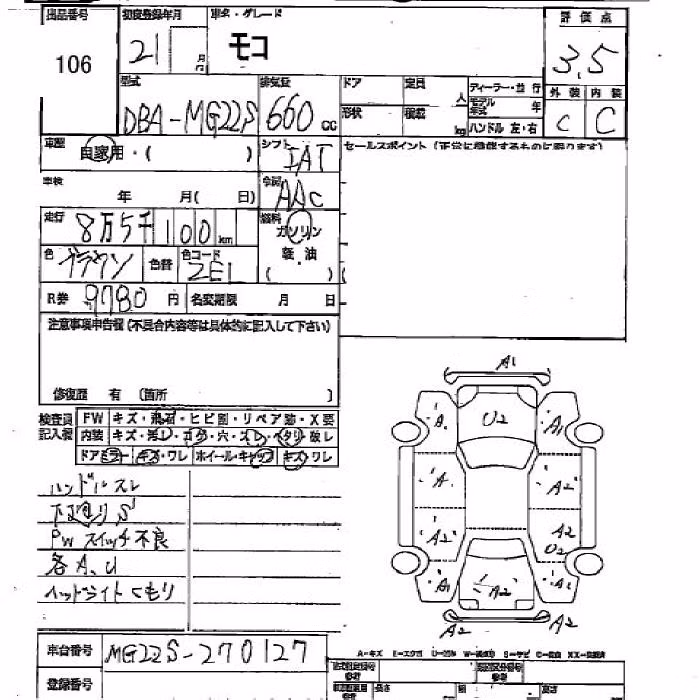 出品番号 初度登録年月 車名・グレード 評価点
106 21 月 モコ 3.5
型式 排気量 ドア 定員 人 ディーラー・並行 外装 内装
DBA-MG22S 660 cc 形状 積載 kg モデル年式 年 C C
ハンドル 左・右
車歴 自家用・( ) シフト IAT セールスポイント
車検 年 月( 日) 冷房 AAC
走行 8万5千100 km 燃料 ガソリン
色 ブラウン 色替 色コード ZE1 軽・油
( )
R券 9780 円 名変期限 月 日
注意事項申告欄(不具合内容等は具体的に記入して下さい)
修復歴 有 〔箇所 〕
検査員 FW キズ・飛石・ヒビ割・リペア跡・X要
記入欄 内装 キズ・汚レ・コゲ・穴・スレ・ヘタリ・破レ
ドアミラー キズ・ワレ ホイール・キャップ キズ・ワレ
ハンドルスレ
下廻りS
PWスイッチ不良
各A.U
ヘッドライトくもり
A1
A1 U2 A1
A A2
A2 A2
U2
A1 A2 A1
A2 A2
車台番号 MG22S-270127
登録番号
A-キズ
長さ